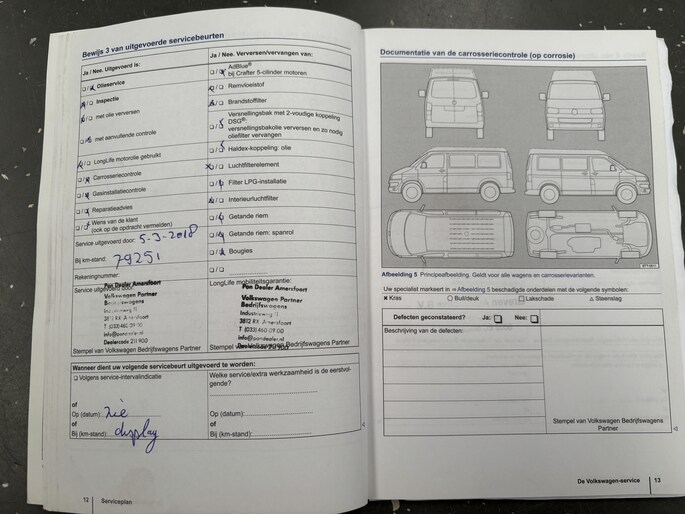 Bewijs 3 van uitgevoerde servicebeurten
Ja / Nee. Uitgevoerd is:
Olieservice
Inspectie
met olie verversen
met aanvullende controle
LongLife motorolie gebruikt
Carrosseriecontrole
Gasinstallatiecontrole
Reparatieadvies
Wens van de klant
(ook op de opdracht vermelden)
Service uitgevoerd door: 5-3-2018
Bij km-stand: 79251
Rekeningnummer:
Service uitgevoerd door:
Pon Dealer Amersfoort
Volkswagen Partner
Bedrijfswagens
Industrieweg 11
3812 RX Amersfoort
T (033) 460 09 00
info@pondealer.nl
Dealercode 211 900
Stempel van Volkswagen Bedrijfswagens Partner
Ja / Nee. Verversen/vervangen van:
AdBlue®
bij Crafter 5-cilinder motoren
Remvloeistof
Brandstoffilter
Versnellingsbak met 2-voudige koppeling
DSG®:
versnellingsbakolie verversen en zo nodig
oliefilter vervangen
Haldex-koppeling: olie
Luchtfilterelement
Filter LPG-installatie
Interieurluchtfilter
Getande riem
Getande riem: spanrol
Bougies
LongLife mobiliteitsgarantie:
Pon Dealer Amersfoort
Volkswagen Partner
Bedrijfswagens
Industrieweg 11
3812 RX Amersfoort
T (033) 460 09 00
info@pondealer.nl
Dealercode 211 900
Stempel van Volkswagen Bedrijfswagens Partner
Wanneer dient uw volgende servicebeurt uitgevoerd te worden:
Volgens service-intervalindicatie
of
Op (datum): zie
of
Bij (km-stand): display
Welke service/extra werkzaamheid is de eerstvol-
gende?
Op (datum):
Bij (km-stand):
12 | Serviceplan
Documentatie van de carrosseriecontrole (op corrosie)
Afbeelding 5 Principeafbeelding. Geldt voor alle wagens en carrosserievarianten.
Uw specialist markeert in ⇒Afbeelding 5 beschadigde onderdelen met de volgende symbolen:
× Kras ○ Buil/deuk □ Lakschade △ Steenslag
Defecten geconstateerd? Ja: Nee:
Beschrijving van de defecten:
Stempel van Volkswagen Bedrijfswagens
Partner
De Volkswagen-service | 13